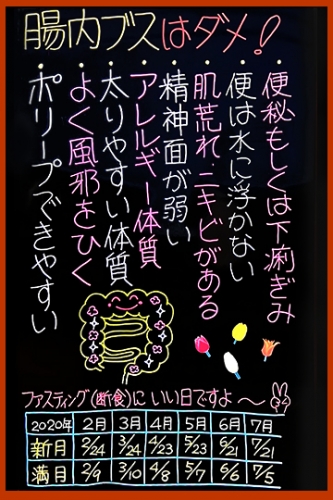 腸内ブスはダメ!
・便秘もしくは下痢ぎみ
・便は水に浮かない
・肌荒れ、ニキビがある
・精神面が弱い
・アレルギー体質
・太りやすい体質
・よく風邪をひく
・ポリープできやすい
ファスティング(断食)に いい日ですよ〜
2020年 2月 3月 4月 5月 6月 7月
新月 2/24 3/24 4/23 5/23 6/21 7/21
満月 2/9 3/10 4/8 5/7 6/6 7/5